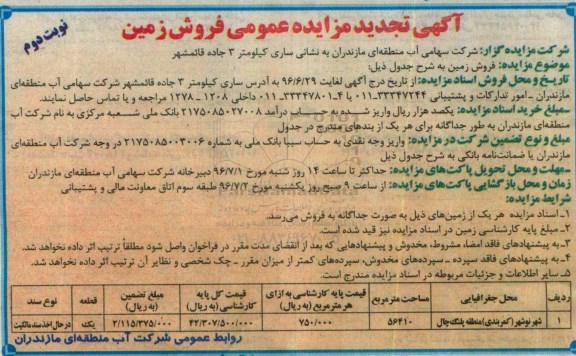 آگهی تجدید مزایده عمومی فروش زمین
نوبت دوم
شرکت مزایده گزار: شرکت سهامی آب منطقه‌ای مازندران به نشانی ساری کیلومتر ۳ جاده قائمشهر
موضوع مزایده: فروش زمین به شرح جدول ذیل:
تاریخ و محل فروش اسناد مزایده: از تاریخ درج آگهی لغایت ۹۶/۶/۲۹ به آدرس ساری کیلومتر ۳ جاده قائمشهر شرکت سهامی آب منطقه‌ای
مازندران – امور تدارکات و پشتیبانی ۳۳۳۴۷۲۴۴-۰۱۱ یا ۴-۳۳۳۴۷۸۰۱-۰۱۱ داخلی ۱۲۰۸ – ۱۲۷۸ مراجعه و یا تماس حاصل نمایند.
-مبلغ خرید اسناد مزایده: یکصد هزار ریال واریز شده به حساب درآمد ۲۱۷۵۰۸۵۰۲۷۰۰۸ بانک ملی شعبه مرکزی به نام شرکت آب
منطقه‌ای مازندران به طور جداگانه برای هر یک از بندهای مندرج در جدول
مبلغ و نوع تضمین شرکت در مزایده: واریز وجه نقدی به حساب سیبا بانک ملی به شماره ۲۱۷۵۰۸۵۰۰۳۰۰۶ در وجه شرکت آب منطقه‌ای
مازندران یا ضمانت‌نامه بانکی به شرح جدول ذیل
-مهلت و محل تحویل پاکت‌های مزایده: حداکثر تا ساعت ۱۴ روز شنبه مورخ ۹۶/۷/۱ دبیرخانه شرکت سهامی آب منطقه‌ای مازندران
زمان و محل بازگشایی پاکت‌های مزایده: از ساعت ۹ صبح روز یکشنبه مورخ ۹۶/۷/۲ طبقه سوم اتاق معاونت مالی و پشتیبانی
شرایط مزایده:
۱-اسناد مزایده هر یک از زمین‌های ذیل به صورت جداگانه به فروش می‌رسد.
۲-مبلغ پایه کارشناسی زمین در اسناد مزایده نیز قید شده است.
۳-به پیشنهادهای فاقد امضا، مشروط، مخدوش و پیشنهادهایی که بعد از انقضای مدت مقرر در فراخوان واصل شود مطلقاً ترتیب اثر داده نخواهد شد.
۴-به پیشنهادهای فاقد سپرده – سپرده‌های مخدوش، سپرده‌های کمتر از میزان مقرر – چک شخصی و نظایر آن ترتیب اثر داده نخواهد شد.
۵-سایر اطلاعات و جزئیات مربوطه در اسناد مزایده مندرج است.
ردیف محل جغرافیایی مساحت مترمربع قیمت پایه کارشناسی به ازای هر مترمربع (به ریال) قیمت کل پایه کارشناسی (به ریال) مبلغ تضمین (به ریال) قطعه نوع سند
۱ شهر نوشهر (کمربندی) منطقه پلنگ‌چال ۵۶۴۱۰ ۷۵۰/۰۰۰ ۴۲/۳۰۷/۵۰۰/۰۰۰ ۲/۱۱۵/۳۷۵/۰۰۰ یک در حال اخذ سند مالکیت
روابط عمومی شرکت آب منطقه‌ای مازندران